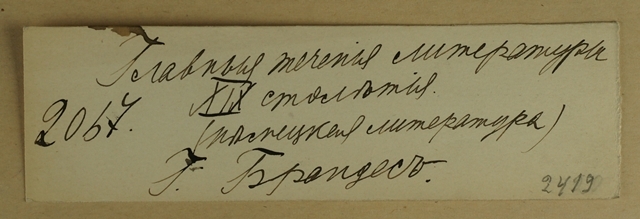 Главныя теченія литературы
XIX столѣтія.
2067.
(нѣмецкая литература)
Г. Брандесъ.
2419